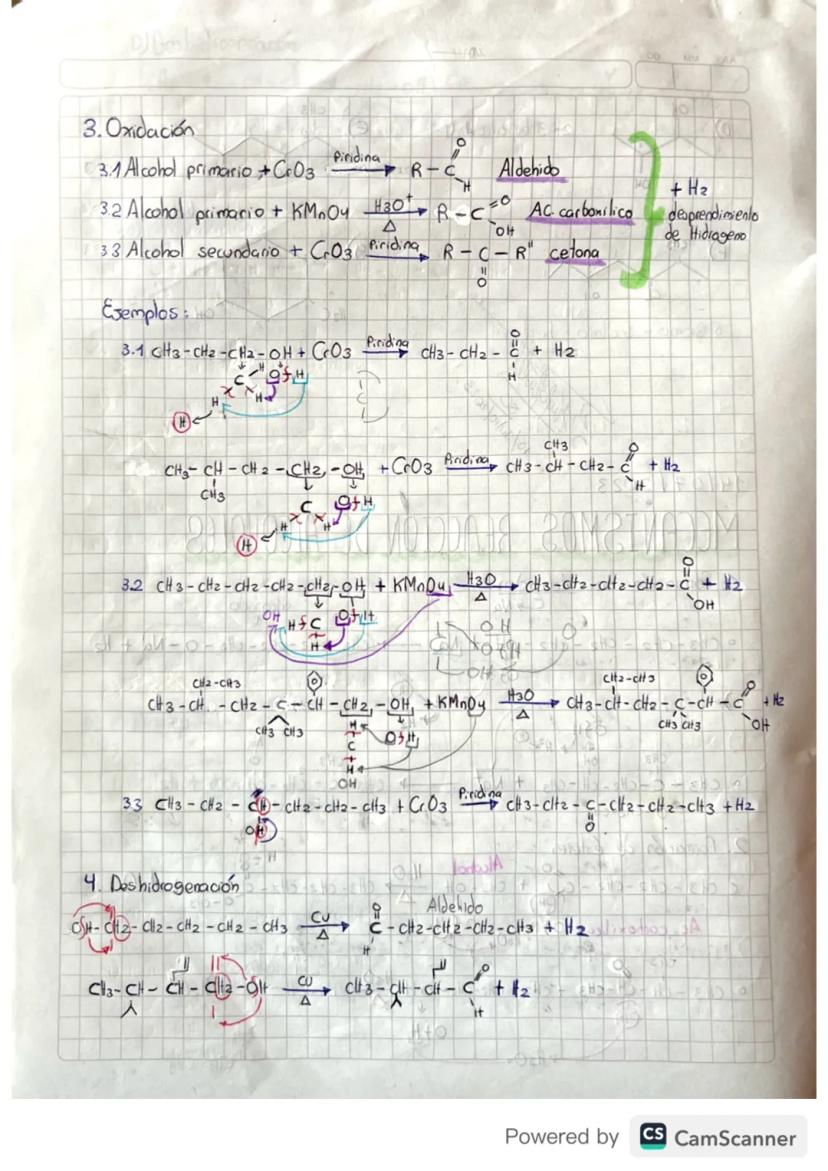 3. Oxidación
3.1 Alcohol primario + CrO3 Piridina → R - C O H Aldehido
3.2 Alcohol primario + KMnO4 H3O+ Δ → R - C = O OH AC. carboxilico
3.3 Alcohol secundario + CrO3 Piridina → R - C - R" O cetona
+ H2
desprendimiento
de Hidrogeno
Ejemplos:
3.1 CH3 - CH2 - CH2 - OH + CrO3 Piridina → CH3 - CH2 - C O H + H2
C H O H
H H
H
CH3 - CH - CH2 - CH2 - OH + CrO3 Piridina → CH3 - CH - CH2 - C O H + H2
CH3 CH3
C O H
H H
H
3.2 CH3 - CH2 - CH2 - CH2 - CH2 - OH + KMnO4 H3O Δ → CH3 - CH2 - CH2 - CH2 - C O OH + H2
OH H C O H
H
CH2 - CH3 CH2 - CH3
CH3 - CH - CH2 - C - CH - CH2 - OH + KMnO4 H3O Δ → CH3 - CH - CH2 - C - CH - C O OH + H2
CH3 CH3 CH3 CH3
H
C O H
H
OH
3.3 CH3 - CH2 - CH - CH2 - CH2 - CH3 + CrO3 Piridina → CH3 - CH2 - C - CH2 - CH2 - CH3 + H2
OH O
4. Deshidrogenación
Aldehido
OH - CH2 - CH2 - CH2 - CH2 - CH3 CU Δ → O C H - CH2 - CH2 - CH2 - CH3 + H2
CH3 - CH - CH - CH2 - OH CU Δ → CH3 - CH - CH - C O H + H2
Powered by CS CamScanner